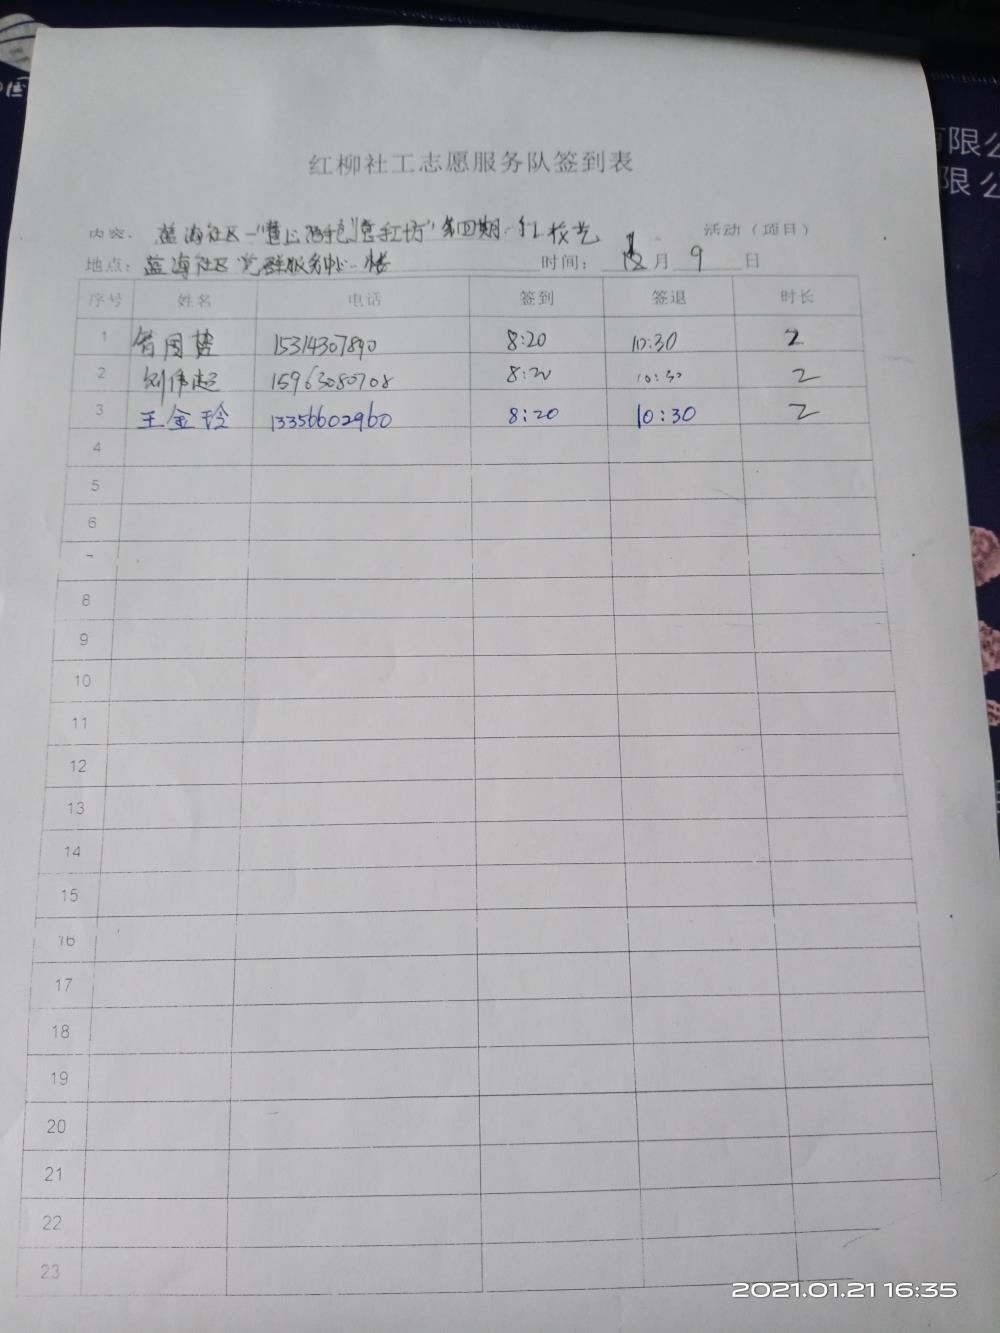 国
有限公
限公
红柳社工志愿服务队签到表
内容: 蓝海社区-"慧心 第四期- 活动（项目）
地点: 蓝海社区党群服务中心一楼 时间: 月 9 日
序号 姓名 电话 签到 签退 时长
1 15314307890 8:20 10:30 2
2 刘伟超 15963080708 8:20 10:30 2
3 王金玲 13356602960 8:20 10:30 2
4
5
6
7
8
9
10
11
12
13
14
15
16
17
18
19
20
21
22
23
2021.01.21 16:35